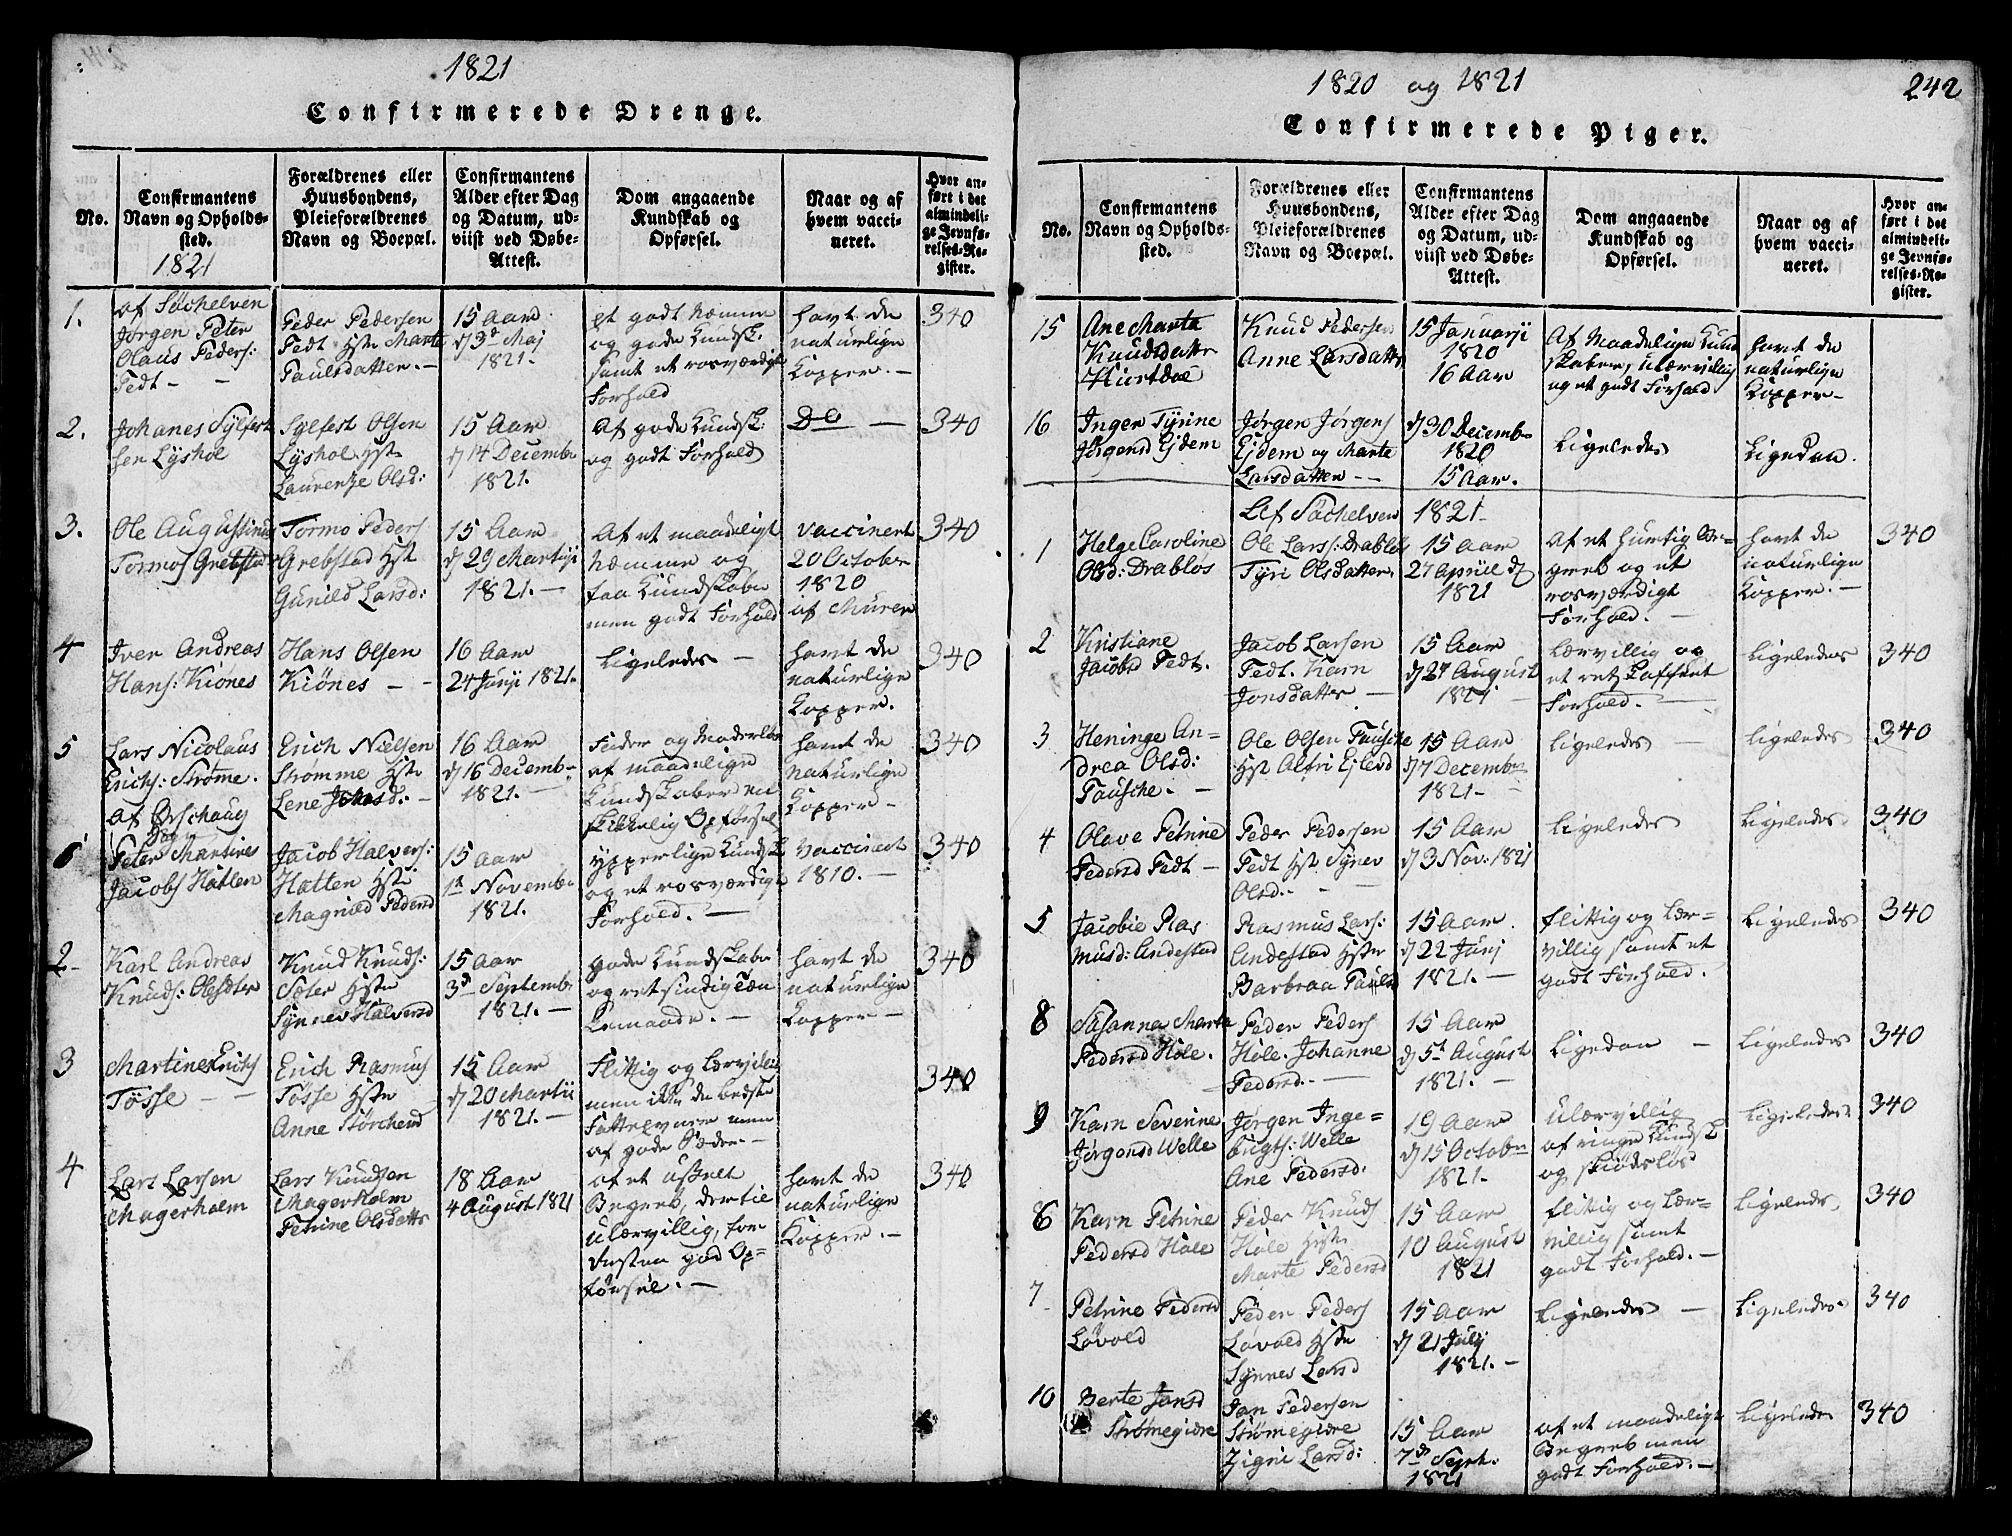 1821
Confirmerede Drenge.
No.
Confirmantens
Navn og Opholds-
sted.
1821
Forældrenes eller
Huusbondens,
Pleieforældrenes
Navn og Boepæl.
Confirmantens
Alder efter Dag
og Datum, ud-
viist ved Døbe-
Attest.
Dom angaaende
Kundskab og
Opførsel.
Naar og af
hvem vacci-
neret.
Hvor an-
ført i det
almindeli-
ge Jevnfø-
relses-Re-
gister.
1.
af Söchelven
Jørgen Peter
Olaus Peders:
Fedt - -
Peder Pedersen
Fedt Hste Marte
Paulsdatter. -
15 Aar
d 3d Maj
1821.
et godt Nemme
og gode Kundsk.
samt et rosværdigt
Forhold
havt de
naturlige
Kopper. -
340
2.
Johanes Sylfest
sen Lyshol
Sylfest Olsen
Lyshol Hste
Laurentze Olsd:
15 Aar
d 14 Decembr
1821.
Af gode Kundsk:
og godt Forhold
Do -
340
3.
Ole Augustinus
Tormos Grebstad
Tormo Peders
Grebstad Hst
Gunild Larsd:
15 Aar
d 29 Martji
1821. -
Af et maadeligt
Nemme og
faa Kundskaber
men godt Forhold
vaccinert
20 October
1820
af Muren
340
4
Iver Andreas
Hans: Kiönes
Hans Olsen
Kiönes - -
16 Aar
24 Junji 1821.
Ligeledes -
havt de
naturlige
Kopper.
340
5
Lars Nicolaus
Erichs: Strøme.
Erich Nielsen
Strømme Hste
Lene
16 Aar
d 16 Decemb-
1821. -
Fader og Moderløs
af maadelige
Kundskaber en
skikkelig Opførsel
havt de
naturlige
Kopper -
340
af Ørschoug
Sogn
Peter Martines
Jacobs Hatten
Jacob Halvers:
Hatten Hste
Magnild Pedersd
15 Aar
1st November
1821.
ypperlige Kundsk
og et rosværdigt
Forhold. -
vaccinert
1810. -
340
2
Karl Andreas
Knuds:
Knud Knuds:
Sæter Hste
Synnev Halversd
15 Aar
3d Septembr
1821. -
gode Kundskaber
og ret sindig Tæn
kemaade. -
havt de
naturlige
Kopper -
340
3
Martines Erichs
Tösse - -
Erich Rasmus
Tösse Hste
Anne Störchersd
15 Aar
d 20 Martii
1821. -
Flittig og Lærvillig
men ikke de bedste
Fatteevner men
af gode Sæder. -
340
4
Lars Larsen
Magerholm
Lars Knudsen
Magerholm
Petrine Olsdattr
18 Aar
4 August 1821
af et usselt
Begreb, dertil
ulærvillig, for
resten god Op-
førsel. -
havt de
naturlige
Kopper. -
340
1820 og 1821
242
Confirmerede Piger.
No.
Confirmantens
Navn og Opholds-
sted.
Forældrenes eller
Huusbondens,
Pleieforældrenes
Navn og Boepæl.
Confirmantens
Alder efter Dag
og Datum, ud-
viist ved Døbe-
Attest.
Dom angaaende
Kundskab og
Opførsel.
Naar og af
hvem vacci-
neret.
Hvor an-
ført i det
almindeli-
ge Jevnfø-
relses-Re-
gister.
15
Ane Marta
Knudsdattr
Hiortdal
Knud Pedersen
Anne Larsdattr
15 Januarji
1820
16 Aar
Af Maadelige Kund
skaber, ulærvillig
og et godt Forhold
havt de
naturlige
Kopper-
16
Inger Tyrine
Jörgensd Ejdem
Jørgen Jörgens
Ejdem og Marte
Larsdatter - -
d 30 Decembr
1820
15 Aar.
Ligeledes
Ligedan.
Af Söchelven
1821
1
Helge Caroline
Olsd: Drabløs
Ole Lars: Drabløs
Tyri Olsdatter,
15 Aar
27 Apriil d
1821
af et hurtig Be-
greb og et
rosværdigt
Forhold. -
havt de
naturlige
Kopper. -
340
2
Kristiane
Jacobsd Fedt.
Jacob Larsen
Fedt. Karn
Jonsdatter -
15 Aar
d 27 August
1821
Lærvillig og
et retskaffent
Forhold. -
Ligeledes
340
3
Heninge An-
drea Olsd:
Fausche. -
Ole Olsen Fausche
Hst Alfri Ejlevsd
15 Aar
d 7 Decembr
1821. -
Ligeledes -
Ligeledes
340
4
Olave Petrine
Pedersd Fedt -
Peder Pedersen
Fedt Hst Synev
Olsd: - -
15 Aar
d 3 Nov: 1821
Ligeledes
Ligeledes
340
5
Jacobie Ras
musd: Andestad
Rasmus Lars:
Andestad Hste
Barbraa Paulsd
15 Aar
d 22 Junj
1821. -
flittig og Lær-
villig samt et
godt Forhold.
Ligeledes
340
8
Susanna Marta
Pedersd Hole.
Peder Peders
Hole. Johanne
Pedersd. -
15 Aar
d 5t August
1821. -
Ligedan -
Ligeledes
340
9
Karn Severine
Jörgensd Welle
Jørgen Inge-
brigts: Welle
Ane Pedersd.
19 Aar
d 15 Octobr
1821.
ulærvillig
af ringe Kundsk
og skiödesløs
Ligeledes
340
6
Karn Petrine
Pedersd Hole
Peder Knuds
Hole Hste
Marte Pedersd
15 Aar
10 August
1821
flittig og Lær-
villig samt
godt Forhold. -
Ligeledes
340
7
Petrine Pedersd
Løvold
Peder Peders
Løvold Hste
Synnev Larsd
15 Aar
d 21 Julj
1821. -
Ligeledes -
Ligeledes
340
10
Berte Jansd
Strømegidre
Jan Pedersen
Strømegidre
Zigni Larsd:
15 Aar
7de Sept.
1821
af et maadeligt
Begreb men
godt Forhold. -
Ligeledes
340